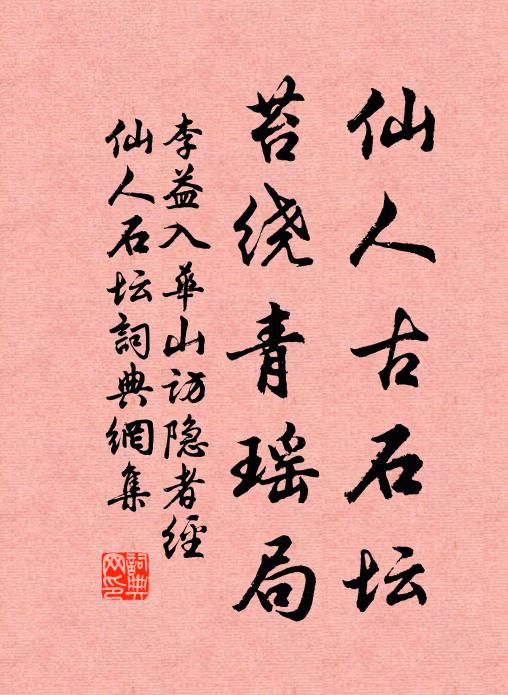 仙人古石坛
苔绕青瑶局
李益入華山访隐者經
仙人石坛詞典網集
詞典
网印